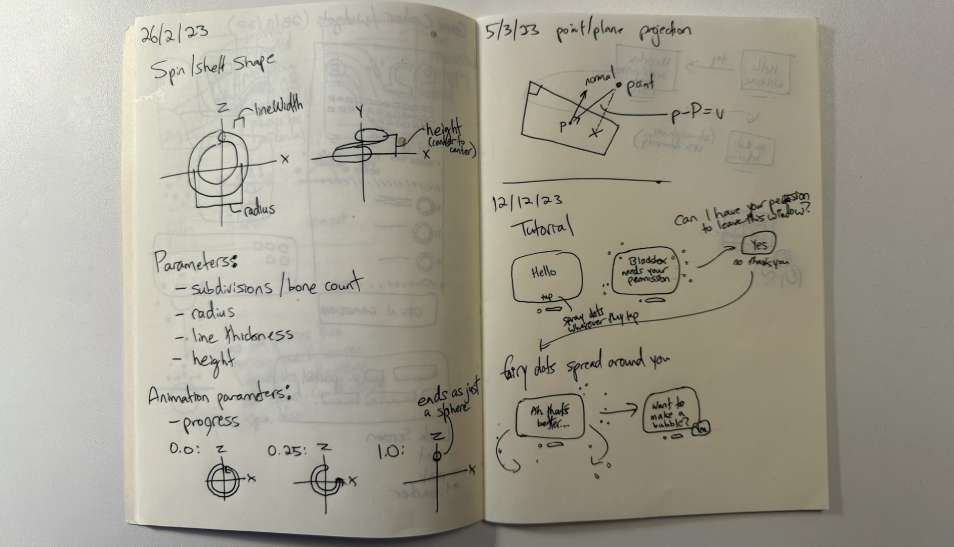 26/2/23
Spin/shell Shape
Z
lineWidth
X
radius
Y
height
(center to
center)
X
Parameters:
- subdivisions/bone count
- radius
- line thickness
- height
Animation parameters:
- progress
ends as just
a sphere
0.0: Z
X
0.25: Z
X
1.0: Z
X
5/3/23 point/plane projection
normal
point
P
p-P=v
12/12/23
Tutorial
Can I have your permission
to leave this window?
Yes
no thank you
Hello
tap
needs your
permission
spray dots
whatever they tap
fairy dots spread around you
Ah that's
better...
Want to
make a
bubble?
Yes